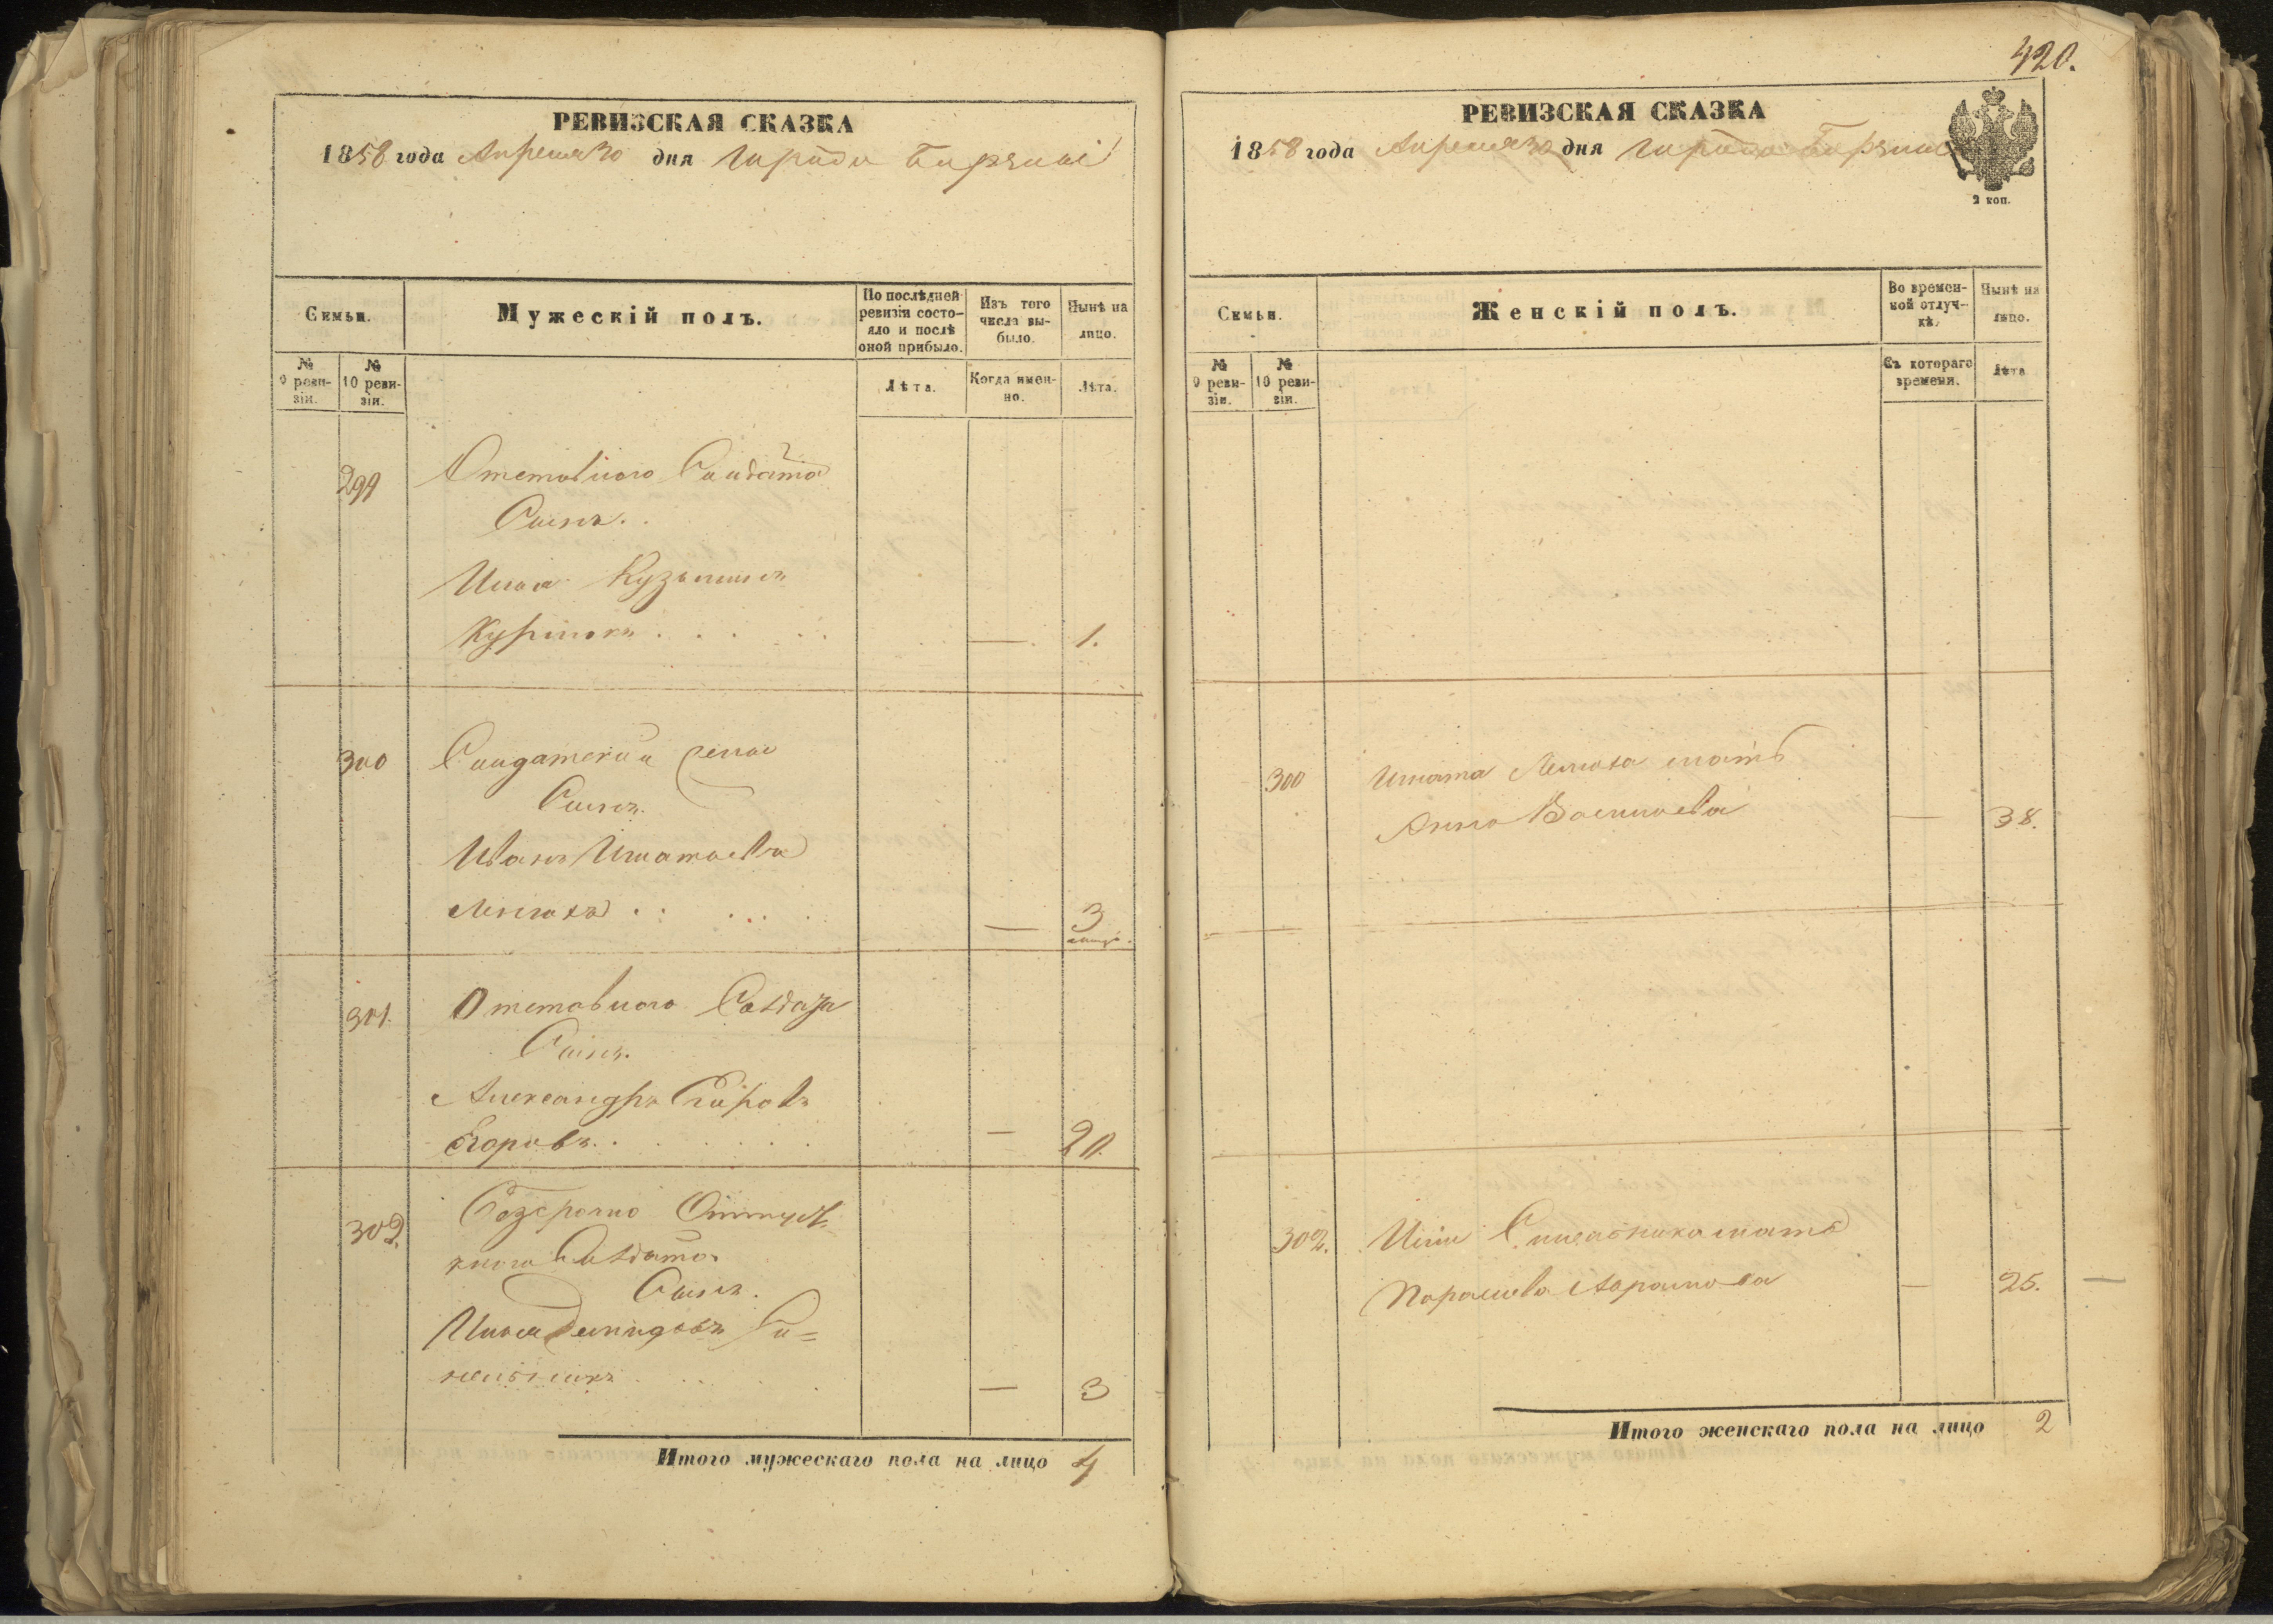 РЕВИЗСКАЯ СКАЗКА
1858 года Апреля 30 дня города
Семьи.
Мужескій полъ.
По послѣдней ревизіи состояло и послѣ оной прибыло.
Изъ того числа выбыло.
Нынѣ на лицо.
№ 9 ревизіи.
№ 10 ревизіи.
Лѣта.
Когда именно.
Лѣта.
299 Отставнаго Солдата
Сынъ.
Илья Кузьминъ
— 1.
300 Солдатскій
Сынъ.
Иванъ Игнатьевъ
— 3
301. Отставнаго Солдата
Сынъ.
Александръ Егоровъ
Егоровъ — 20.
302. Безсрочно Отпуск-
наго Солдата
Сынъ.
Илья Демидовъ Си=
нельникъ — 3
Итого мужескаго пола на лицо 4
420.
РЕВИЗСКАЯ СКАЗКА
1858 года Апреля 30 дня города
2 коп.
Семьи.
Женскій полъ.
Во временной отлучкѣ.
Нынѣ на лицо.
№ 9 ревизіи.
№ 10 ревизіи.
Съ котораго времени.
Лѣта
300 Игната мать
Анна Васильева — 38.
302. Ильи Синельника мать
Парасковья Абрамова — 25.
Итого женскаго пола на лицо 2